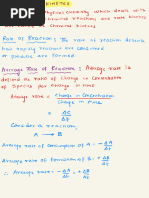 KINETICS
physical chemistry which deals with
reactions and rate kinetics
Rate of Reaction: The rate of reaction defines
how rapidly reactant are consumed
products are formed
Average Rate of Reaction: Average rate is
defined as ratio of change in concentration
of species per change in time
Average rate = Change in concentration
Change in time
= ΔC
Δt
Consider a reaction,
A → B
Average rate of consumption of A = -ΔA
Δt
Average rate of formation of B = +ΔB
Δt
∴ Average rate = -ΔA = +ΔB
Δt Δt